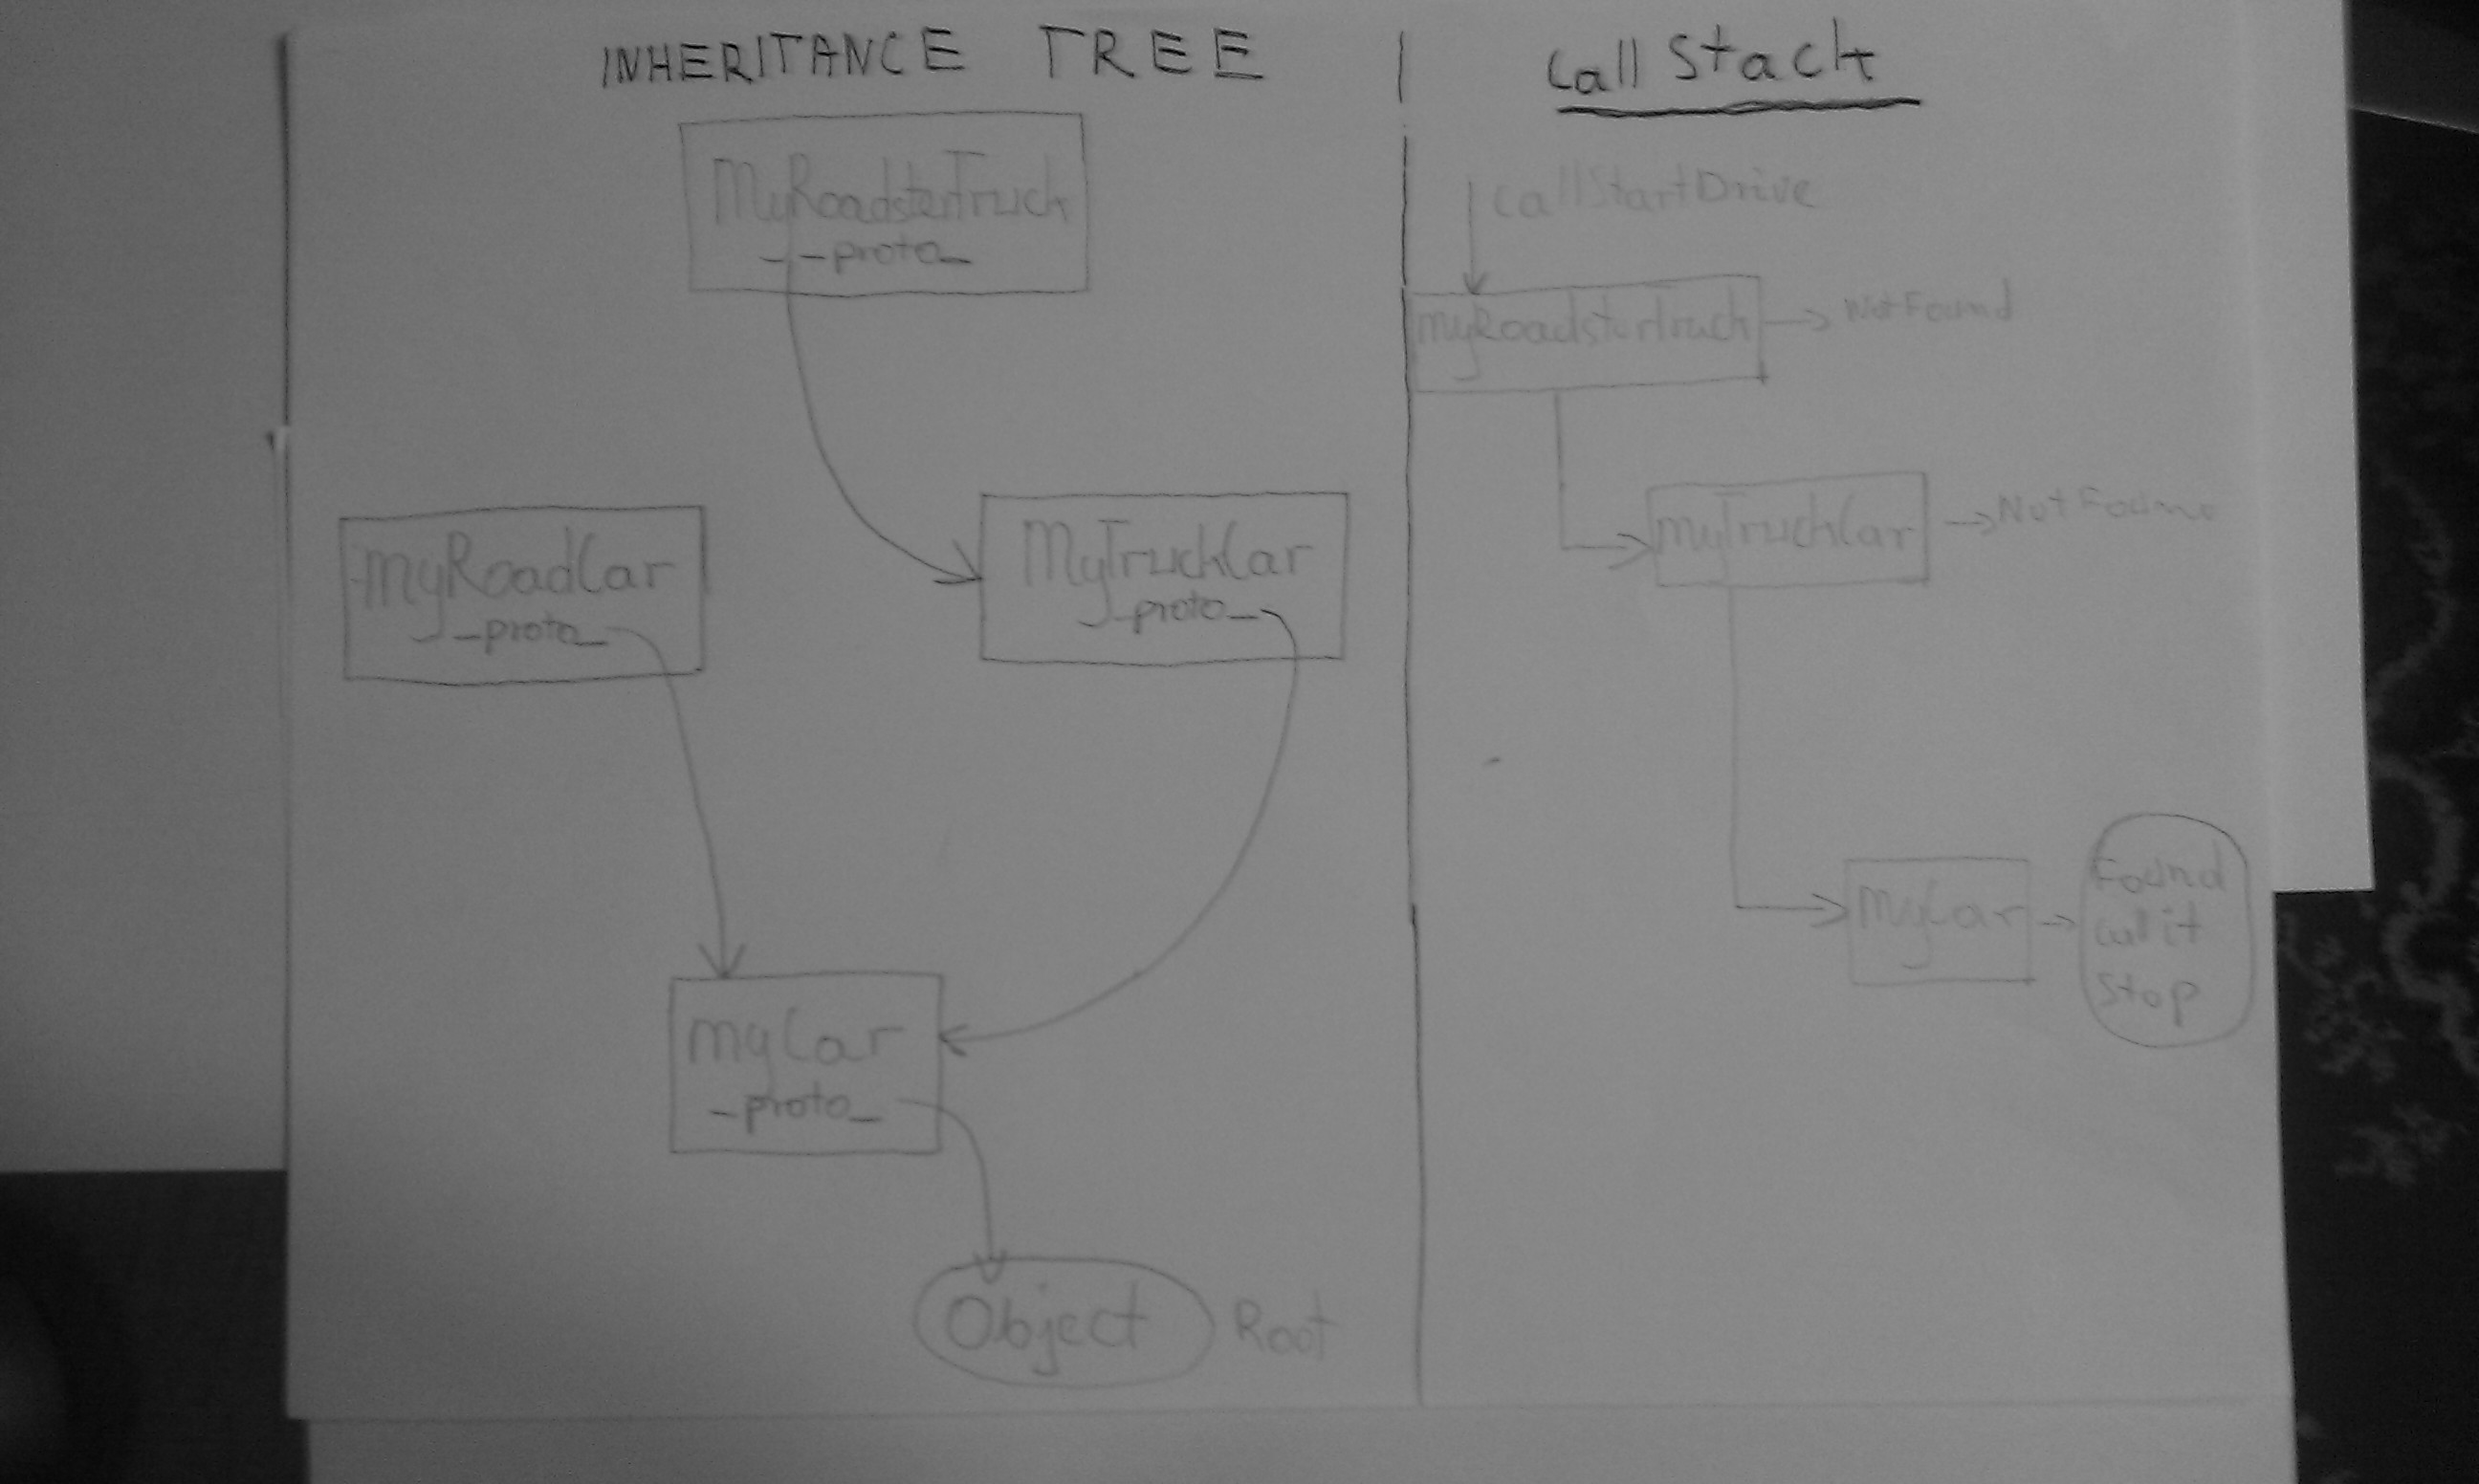 INHERITANCE TREE
MyRoadsterTruck
__proto_
myRoadCar
_proto_
MyTruckCar
_proto_
myCar
_proto_
Object
Root
Call Stack
callStartDrive
myRoadsterTruck
Not Found
myTruckCar
Not Found
myCar
Found
it
Stop